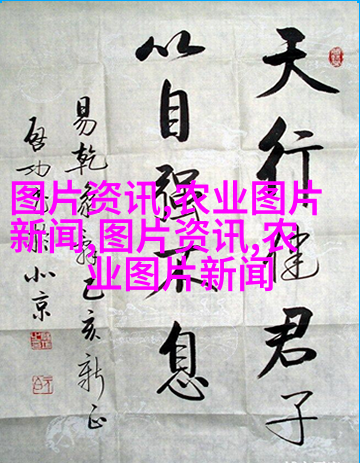 天行健君子
以自强不息
易乾象辞乙亥新正
启功书于北京
图片资讯,农业图片
新闻,图片资讯,农
业图片新闻